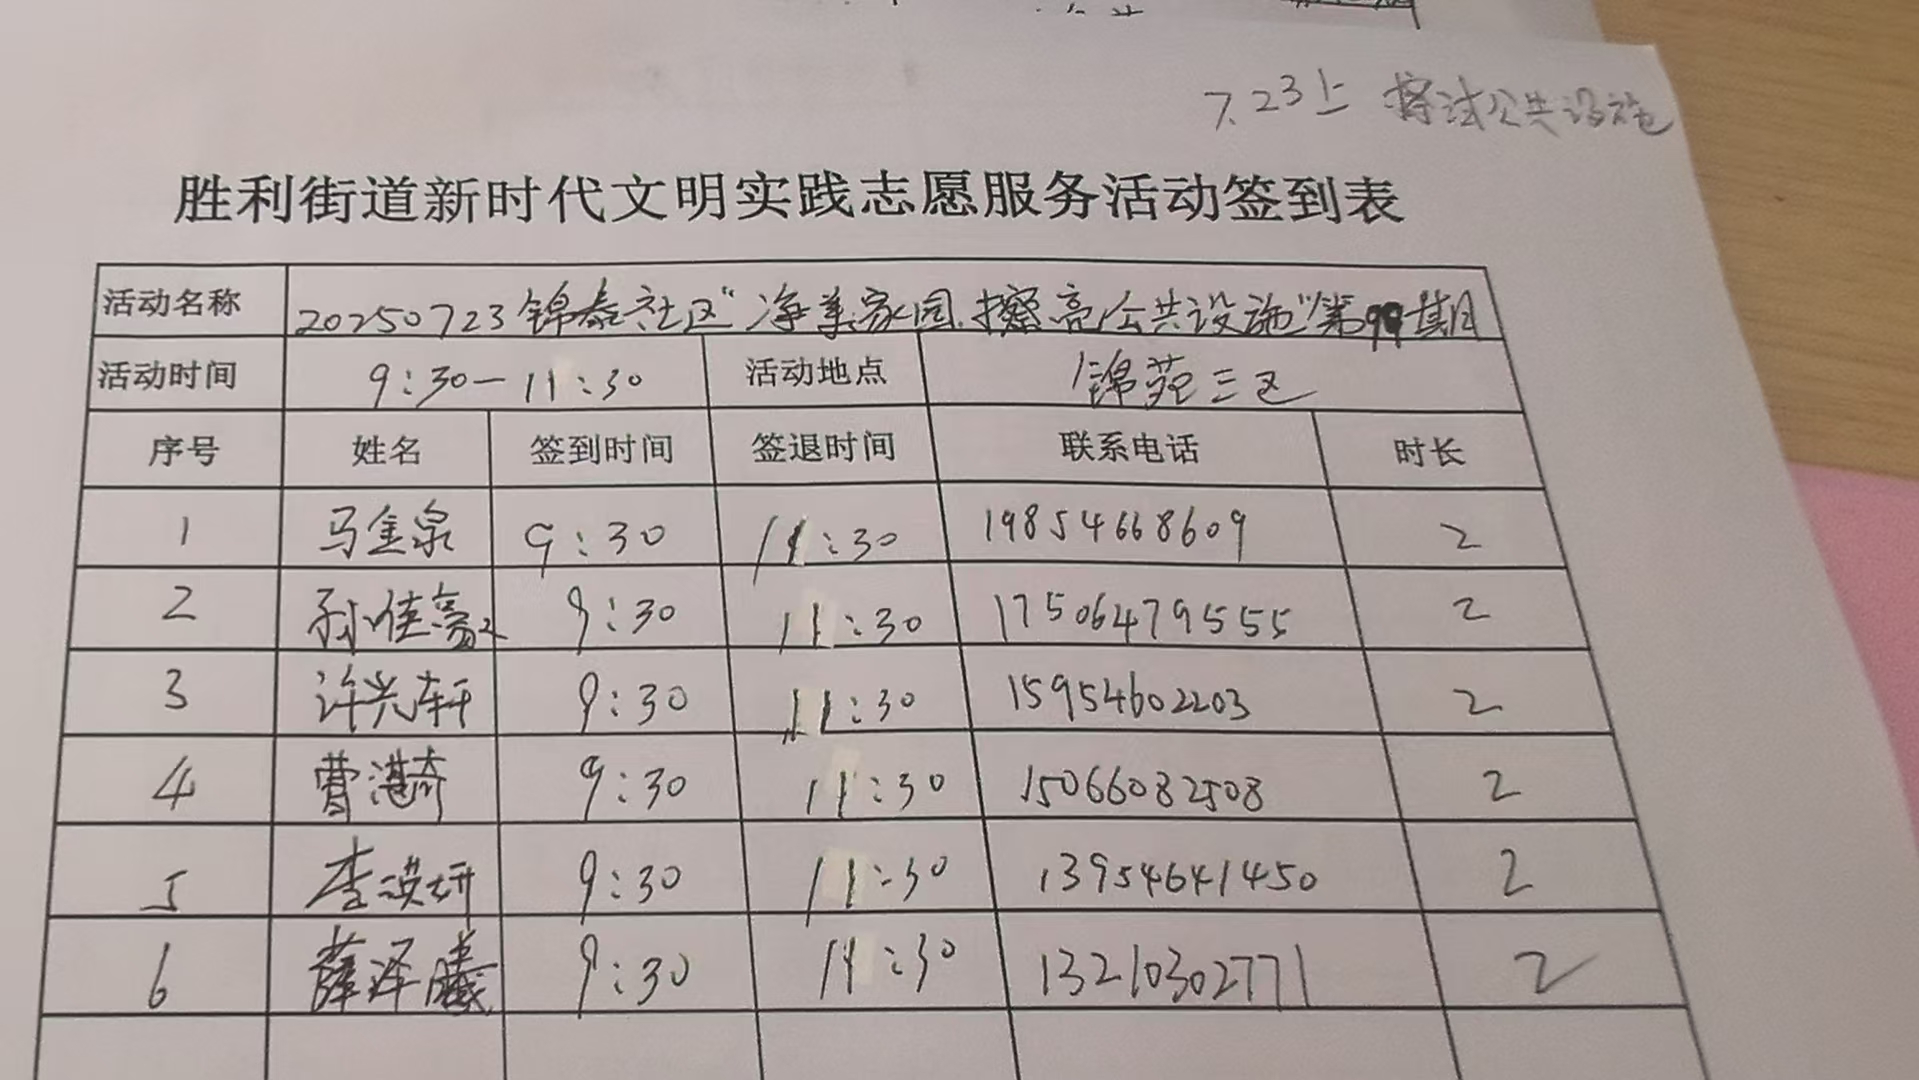 7.23上 擦试公共设施
胜利街道新时代文明实践志愿服务活动签到表
活动名称 20250723锦泰社区“净美家园.擦亮公共设施”第99期
活动时间 9:30—11:30 活动地点 锦苑三区
序号 姓名 签到时间 签退时间 联系电话 时长
1 马金泉 9:30 11:30 19854668609 2
2 孙佳 9:30 11:30 17506479555 2
3 许兴轩 9:30 11:30 15954602203 2
4 曹湛奇 9:30 11:30 15066082508 2
5 李漠妍 9:30 11:30 13954641450 2
6 薛泽曦 9:30 11:30 13210302771 2